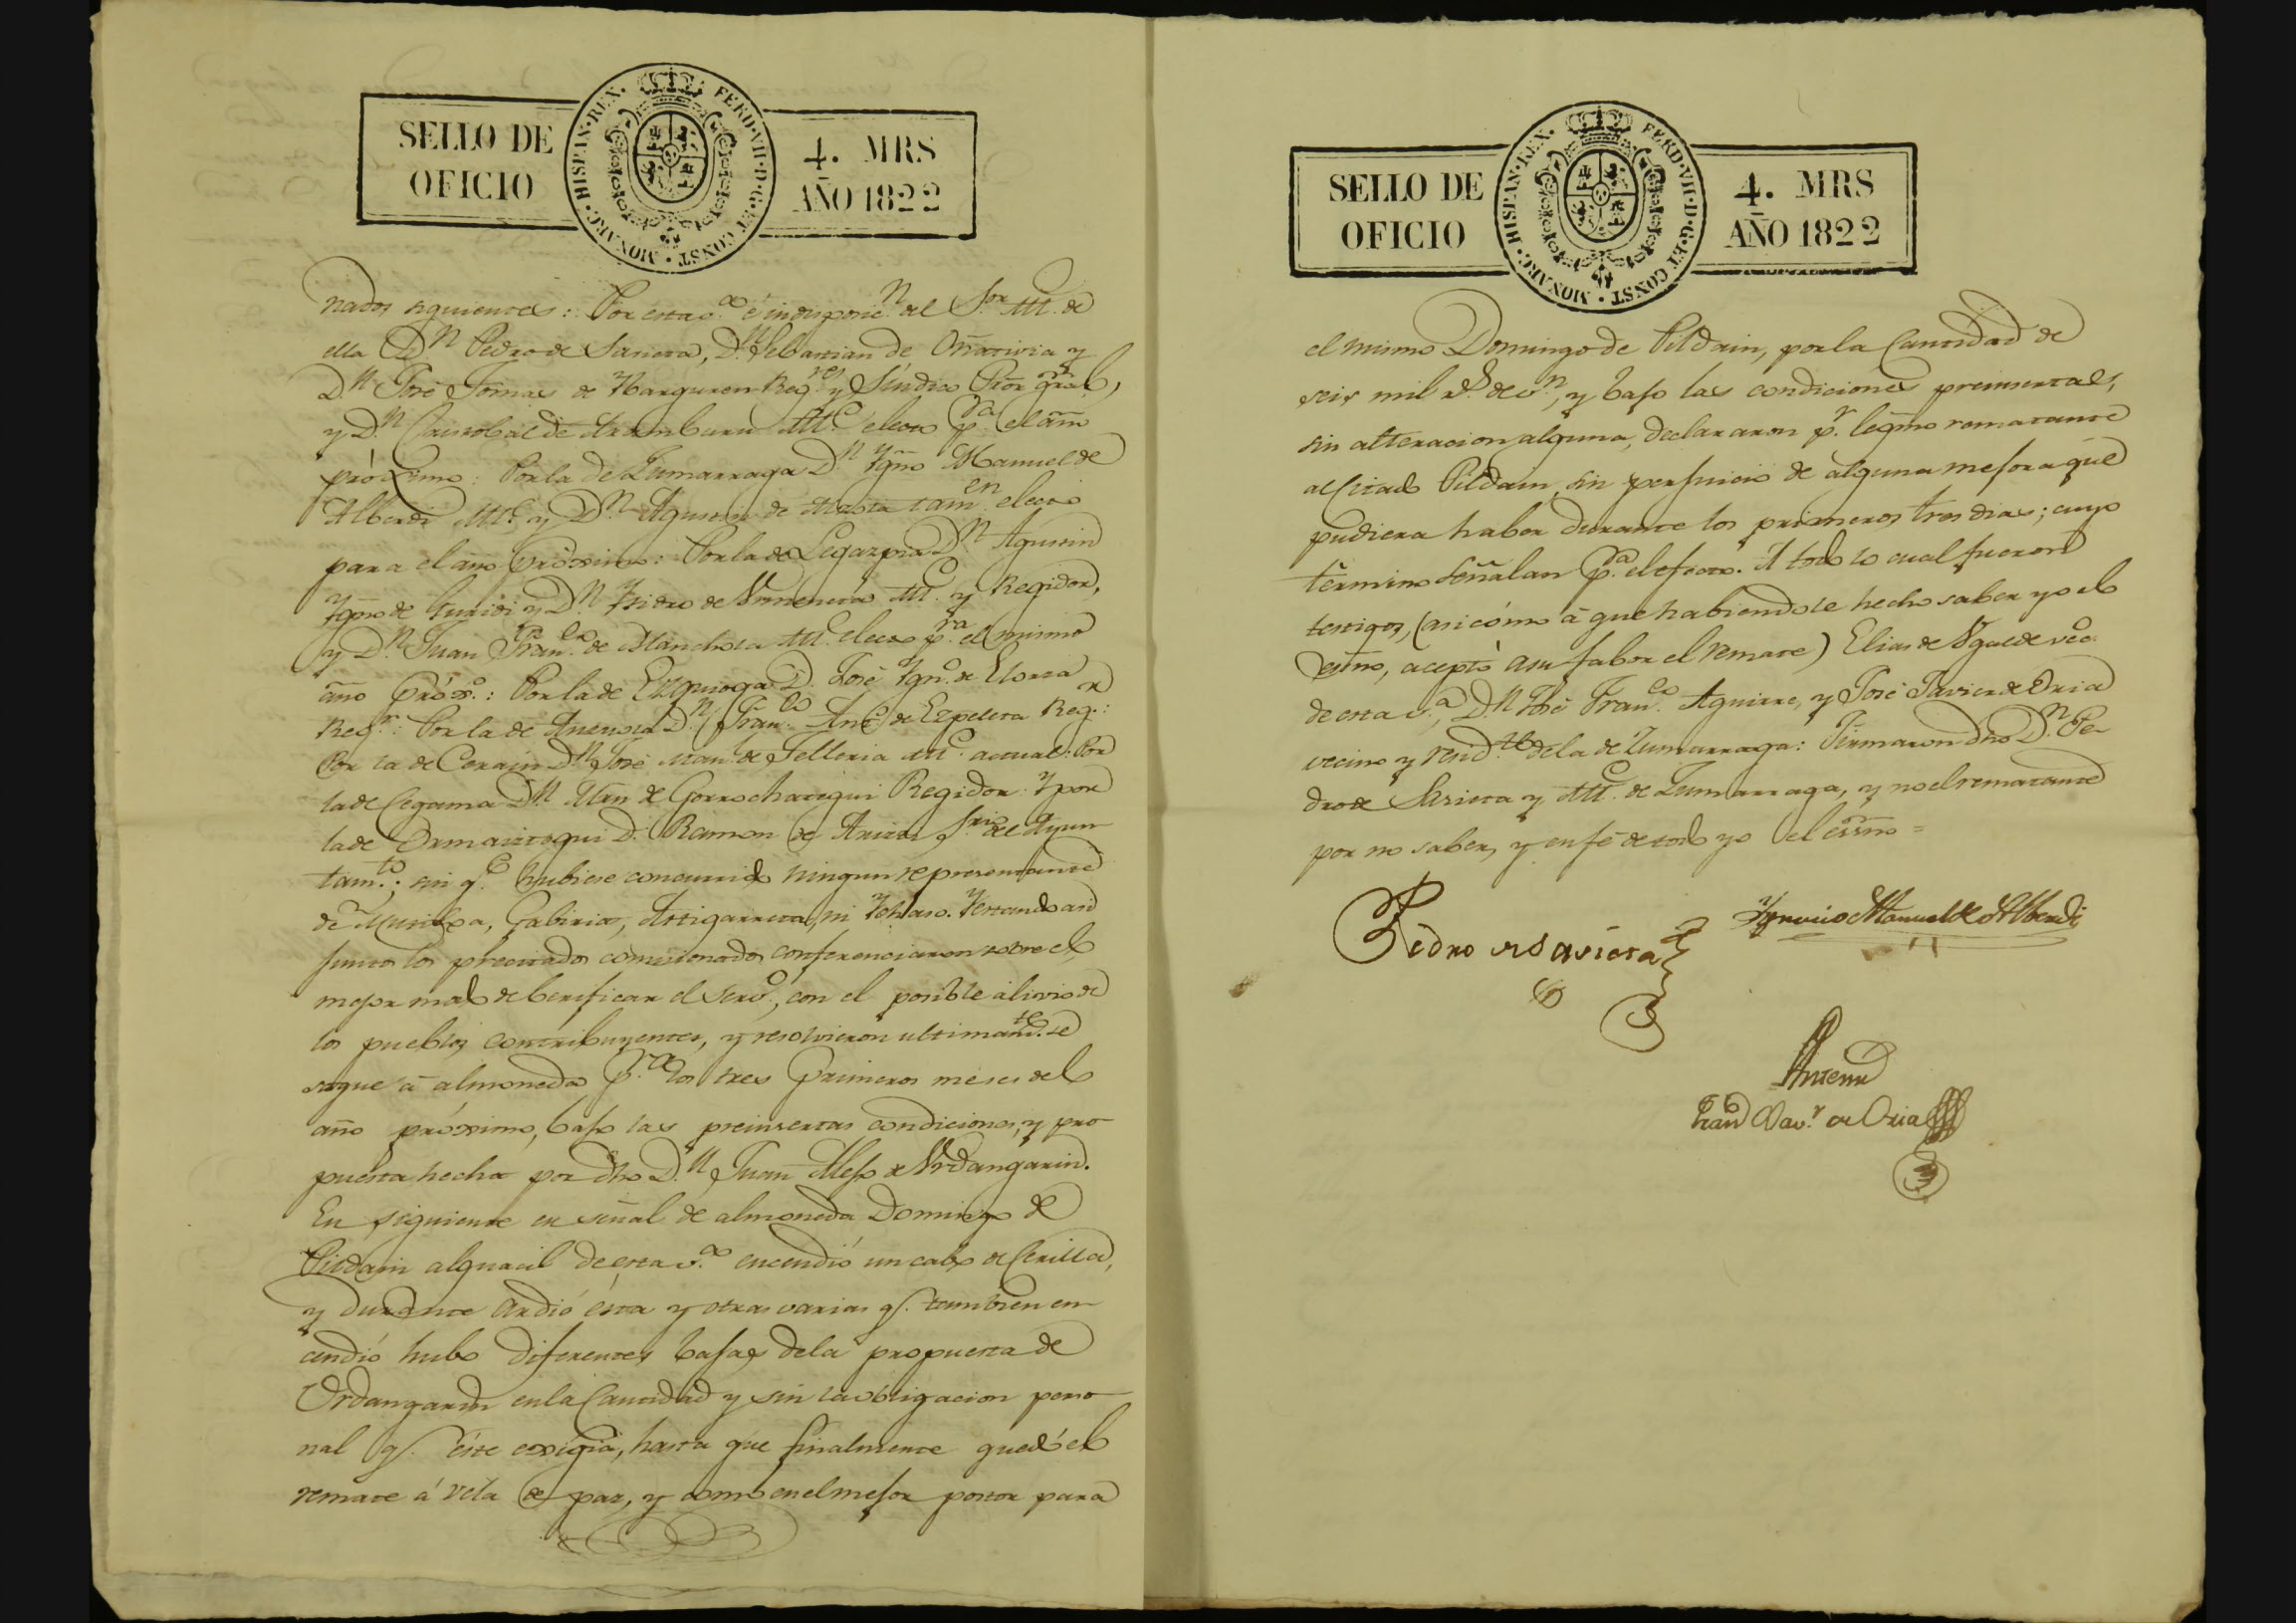 SELLO DE
OFICIO
HISPAN·REX. FERD·VII·D·G·ET CONST·MONARC·
4. MRS
AÑO 1822
nados siguientes: Por esta v.ª é indisposic.n del S.or Al.e de
ella D.n Pedro de Sarieta, D.n Sebastian de Oñativia y
D.n José Tomas de Yarguren Reg.res y Síndico Pror gral,
y D.n Cristobal de Aramburu Al.e electo p.ra el año
próximo: Por la de Zumarraga D.n Ygno Manuel de
Alberdi Al.e y D.n Agustin de tam.en electo
para el año próximo: Por la de Legazpia D.n Agustin
Ygno de Guridi y D.n Ysidro de Al.e y Regidor,
y D.n Juan Fran.co de Mancisola Al.e electo p.ra el mismo
año próx.o: Por la de Ezquioga D. José Ygn.o de Elorza
Reg.r: Por la de Anzuola D.n Fran.co Ant.o de Ezpeleta Reg.r:
Por la de Cerain D.n José Man.l de Telleria Al.e actual: Por
la de Cegama D.n Mrn de Gorrochategui Regidor: Y por
la de Ormaiztegui D. Ramon de Arizti S.rio del Ayun
tam.to; sin q.e hubiese concurrido ningun representante
de Mutiloa, Gabiria, Astigarreta, ni Ychaso. Y estando asi
juntos los precitados comisionados conferenciaron sobre el
mejor modo de berificar el serv.o, con el posible alivio de
los pueblos contribuyentes, y resolvieron ultimam.te se
saque á almoneda p.ra los tres primeros meses del
año próximo, bajo las preinsertas condiciones, y pro
puesta hecha por dho D.n Juan Alejo de Urdangarin.
En siguiente en señal de almoneda Domingo de
Pildain alguacil de esta v.ª encendió un cabo de Cerilla,
y durante ardió ésta y otras varias q.e tambien en
cendió hubo diferentes bajas de la propuesta de
Urdangarin en la Cantidad y sin la obligacion perso
nal q.e éste exigia, hasta que finalmente quedó el
remate á vela de par, y como en el mejor postor para
SELLO DE
OFICIO
HISPAN·REX. FERD·VII·D·G·ET CONST·MONARC·
4. MRS
AÑO 1822
el mismo Domingo de Pildain, por la Cantidad de
seis mil r.s de v.n, y bajo las condiciones preinsertas,
sin alteracion alguna, declararon p.r legmo rematante
al citado Pildain, sin perjuicio de alguna mejora que
pudiera haber durante los primeros tres dias; cuyo
término señalan p.a el efecto. A todo lo cual fueron
testigos, (asi cómo á que habiendole hecho saber yo el
esno, aceptó a su fabor el remate) Elias de Ugalde vec.o
de esta v.ª, D.n José Fran.co Aguirre, y José Javier de Oria
vecino y resid.te de la de Zumarraga: Firmaron dho D.n Pe-
dro de Sarieta y Al.e de Zumarraga, y no el rematante
por no saber, y en fé de todo yo el essno =
Pedro de Sarieta
Ygnacio Manuel de Alberdi
Antemi
Fran.co Xav.r de Oria